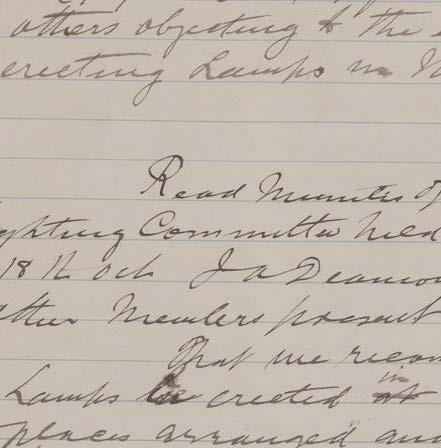 others objecting to the
erecting Lamps in
Read Minutes of
ghting Committee held
18th Oct J A Deamon
other Members present
That we recom
Lamps be erected in at
places arranged and